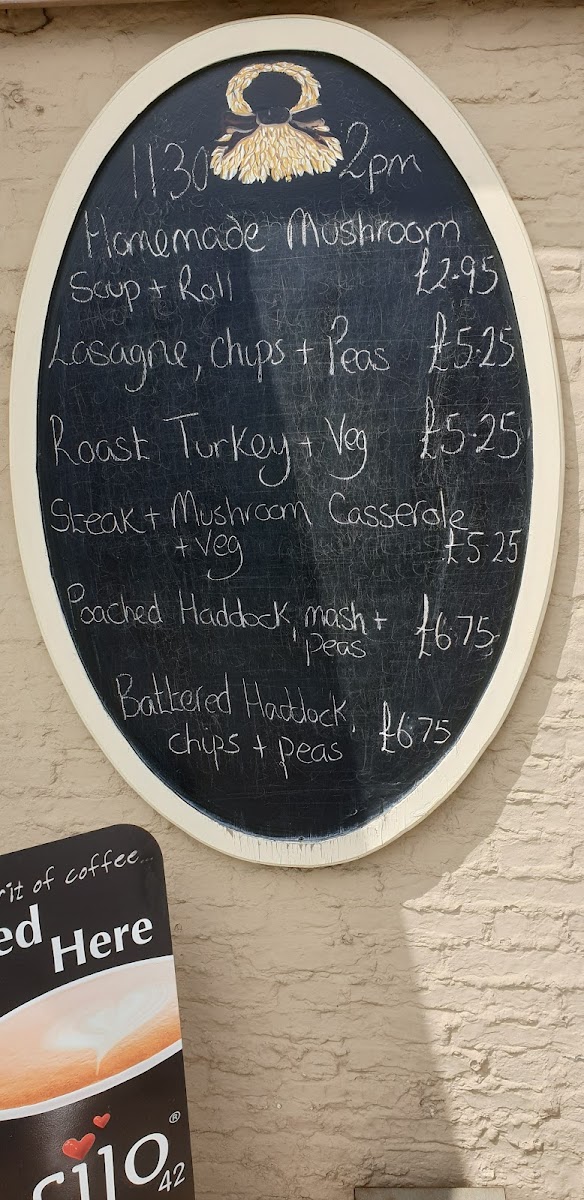 1130 2pm
Homemade Mushroom
Soup + Roll £2.95
Lasagne, chips + Peas £5.25
Roast Turkey + Veg £5.25
Steak + Mushroom Casserole
+ veg £5.25
Poached Haddock, mash +
peas £6.75
Battered Haddock,
chips + peas £6.75
rit of coffee...
ed Here
silo®
42